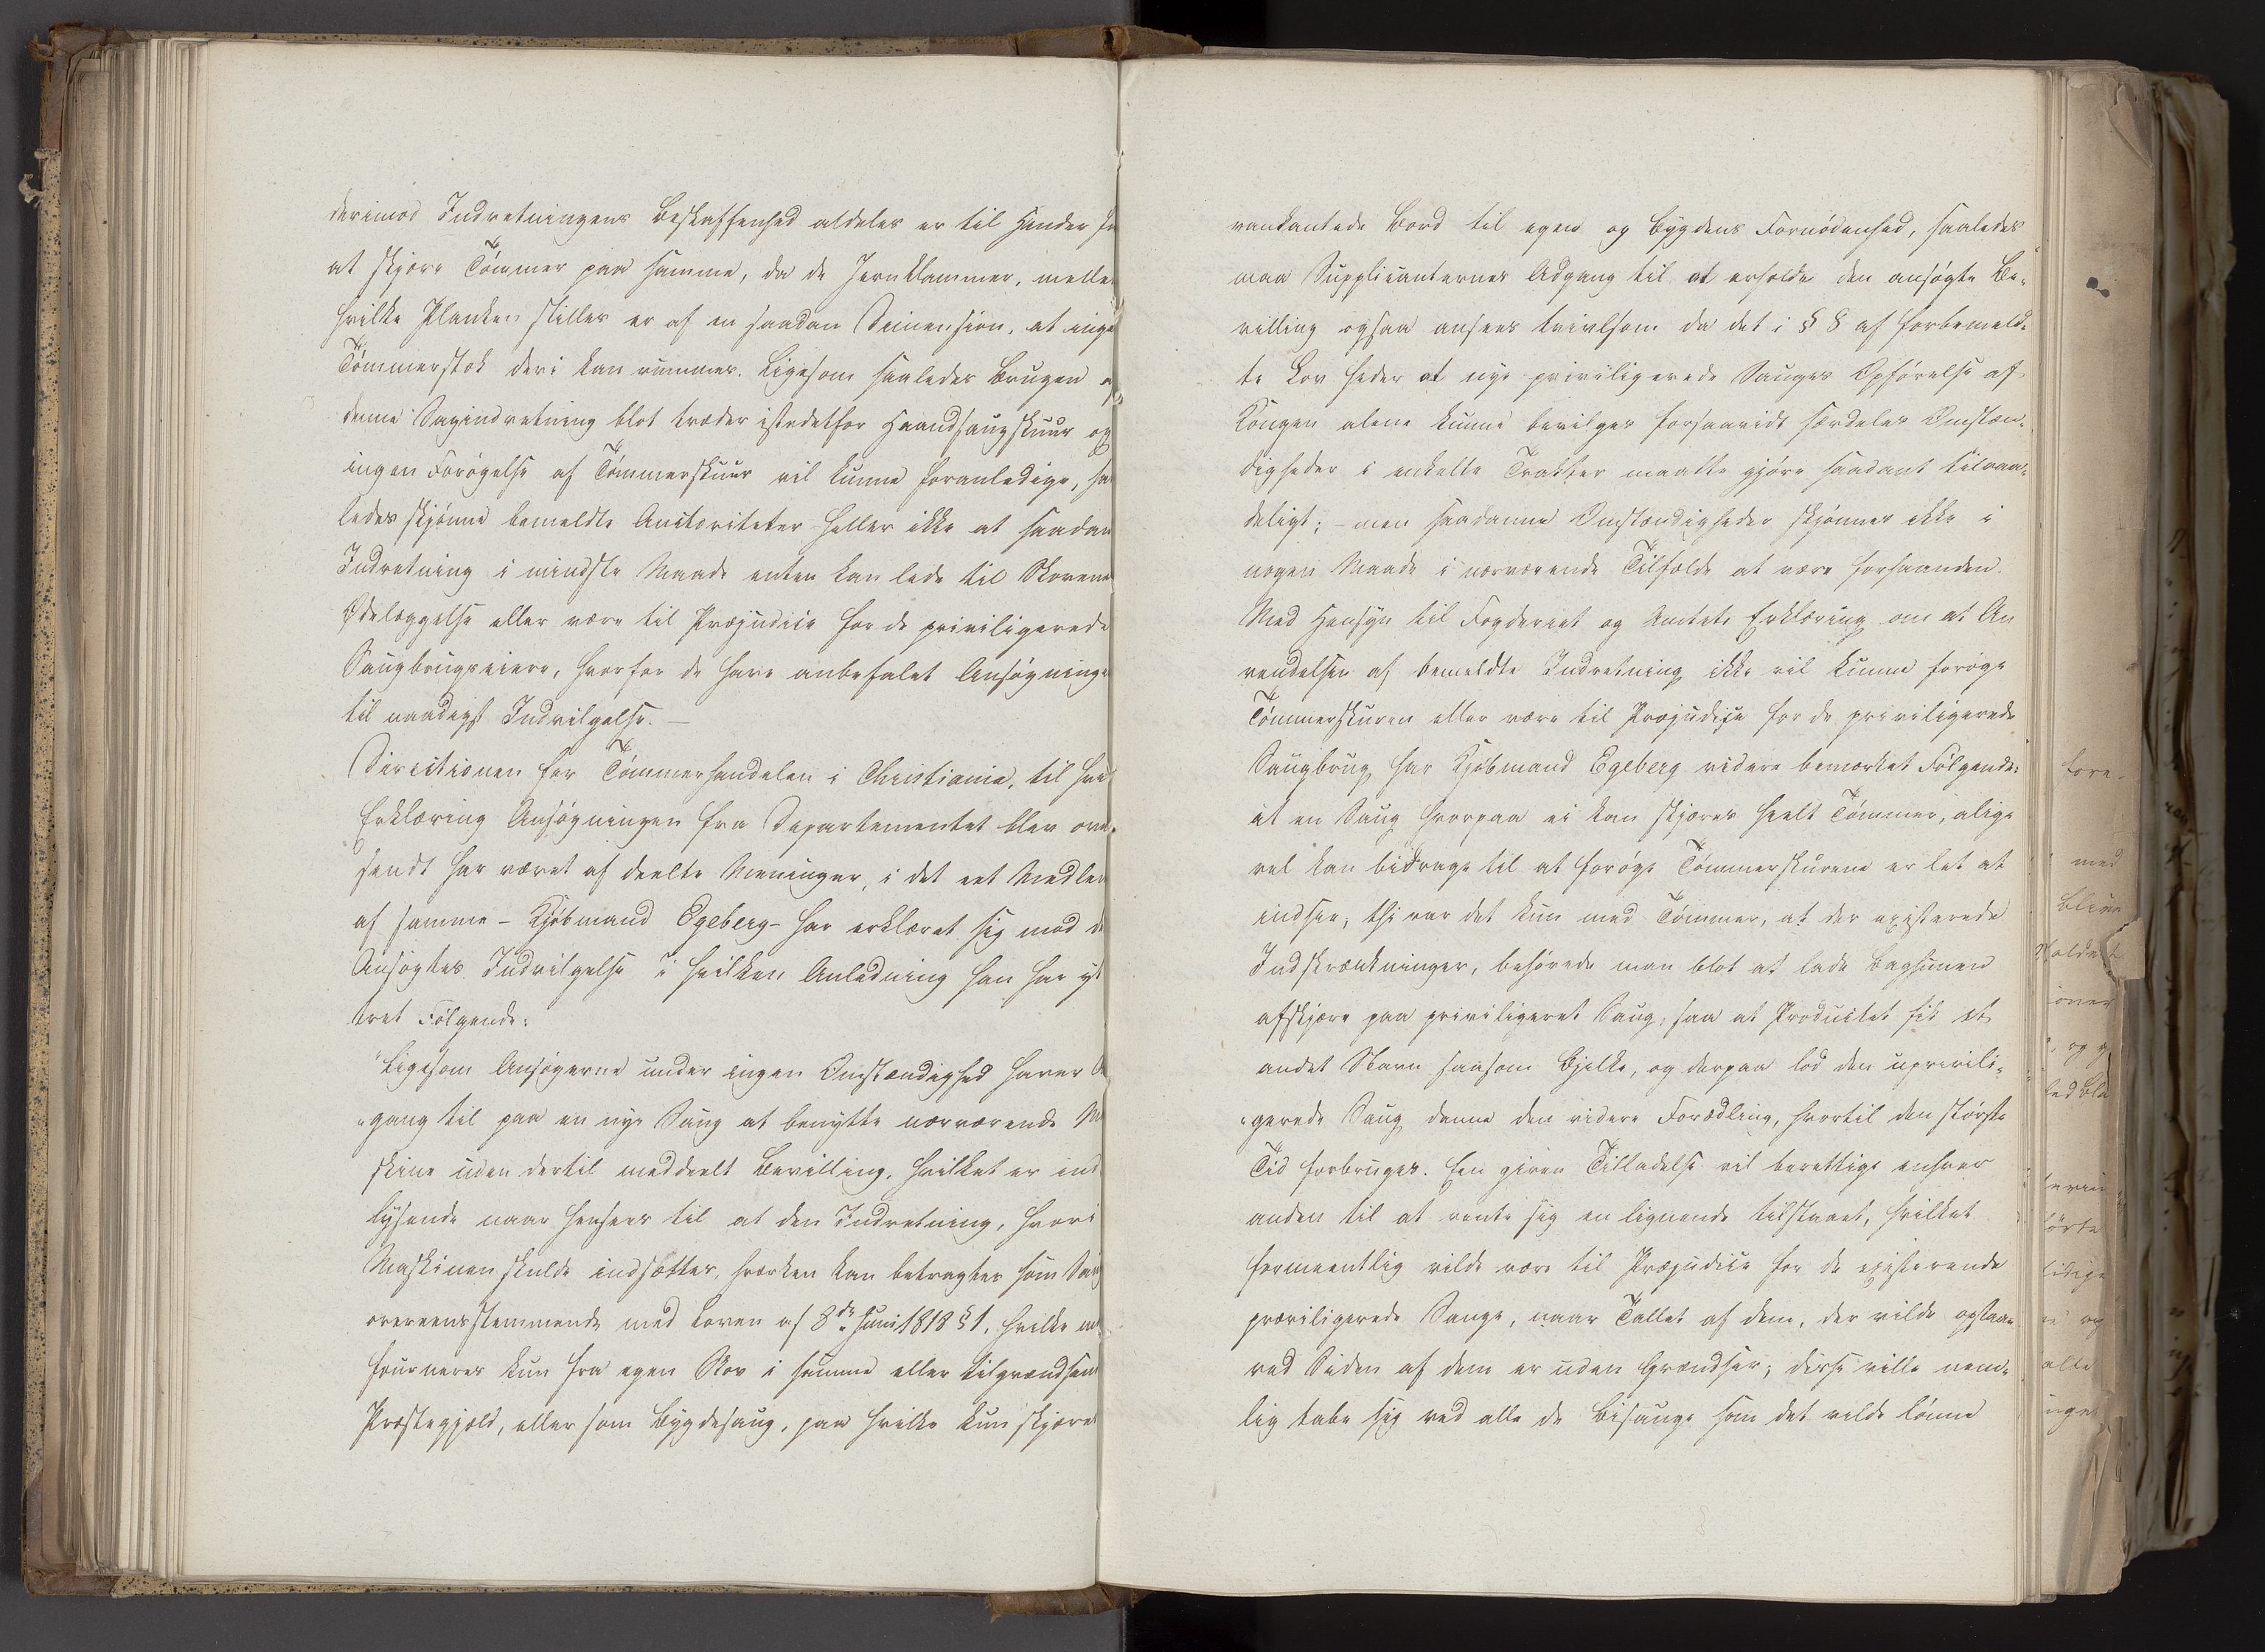 derimod Indretningens Beskaffenhed aldeles er til Hinder for
at skjære Tømmer paa samme, da de Jernklammer, mellem
hvilke Planken stilles er af en saadan Dimension, at ingen
Tømmerstok deri kan rummes. Ligesom saaledes Brugen af
denne Sagindretning blot træder istedetfor Haandsaugskuur og
ingen Forøgelse af Tømmerskuur vil kunne foranledige, saa
ledes skjønne bemeldte Auctoriteter heller ikke at saadan
Indretning i mindste Maade enten kan lede til Skovens
Ødelæggelse eller være til Præjudice for de priviligerede
Saugbrugseiere, hvorfor de have anbefalet Ansøgningen
til naadigst Indvilgelse. –
Directionen for Tømmerhandelen i Christiania, til hvis
Erklæring Ansøgningen fra Departementet blev over
sendt har været af deelte Meninger, i det eet Medlem
af samme – Kjøbmand Egeberg – har erklæret sig mod det
Ansøgtes Indvilgelse i hvilken Anledning han har yt
tret Følgende:
"Ligesom Ansøgerne under ingen Omstændighed haver Ad
"gang til paa en nye Saug at benytte nærværende Ma
skine uden dertil meddeelt Bevilling, hvilket er ind
lysende naar hensees til at den Indretning, hvori
Maskinen skulde indsættes, hverken kan betragtes som Saug
overeensstemmende med Loven af 8de Juni 1818 § 1, hvilke
fourneres kun fra egen Skov i samme eller tilgrændsende
Præstegjeld, eller som Bygdesaug, paa hvilke kun skjæres
vankantede Bord til egen og Bygdens Fornødenhed, saaledes
maa Supplicanternes Adgang til at erholde den ansøgte Be-
villing ogsaa ansees tvivlsom da det i § 8 af forbemeld-
te Lov heder at nye priviligerede Sauges Opførelse af
Kongen alene kunne bevilges forsaavidt særdeles Omstæn-
digheder i enkelte Trakter maatte gjøre saadant tilraa-
deligt; – men saadanne Omstændigheder skjønnes ikke i
nogen Maade i nærværende Tilfælde at være forhaanden.
Med Hensyn til Fogderiet og Amtets Erklæring om at An
vendelsen af bemeldte Indretning ikke vil kunne forøge
Tømmerskuren eller være til Præjudice for de priviligerede
Saugbrug har Kjøbmand Egeberg videre bemærket Følgende:
at en Saug hvorpaa ei kan skjæres heelt Tømmer, alige
vel kan bidrage til at forøge Tømmerskurene er let at
indsee; thi var det kun med Tømmer, at der existerede
Indskrænkninger, behøvede man blot at lade Baghunen
afskjære paa priviligeret Saug, saa at Productet fik et
andet Navn saasom Bjelke, og derpaa lod den uprivili-
"gerede Saug danne den videre Forædling, hvortil den største
Tid forbruges. En given Tilladelse vil berettige enhver
anden til at vente sig en lignende tilstaaet, hvilket
formeentlig vilde være til Præjudice for de existerende
præviligerede Sauge, naar Tallet af dem, der vilde opstaae
ved Siden af dem er uden Grændser; disse ville nem-
lig tabe sig ved alle de Bisauge som det vilde lønne
fore-
med
blive
og